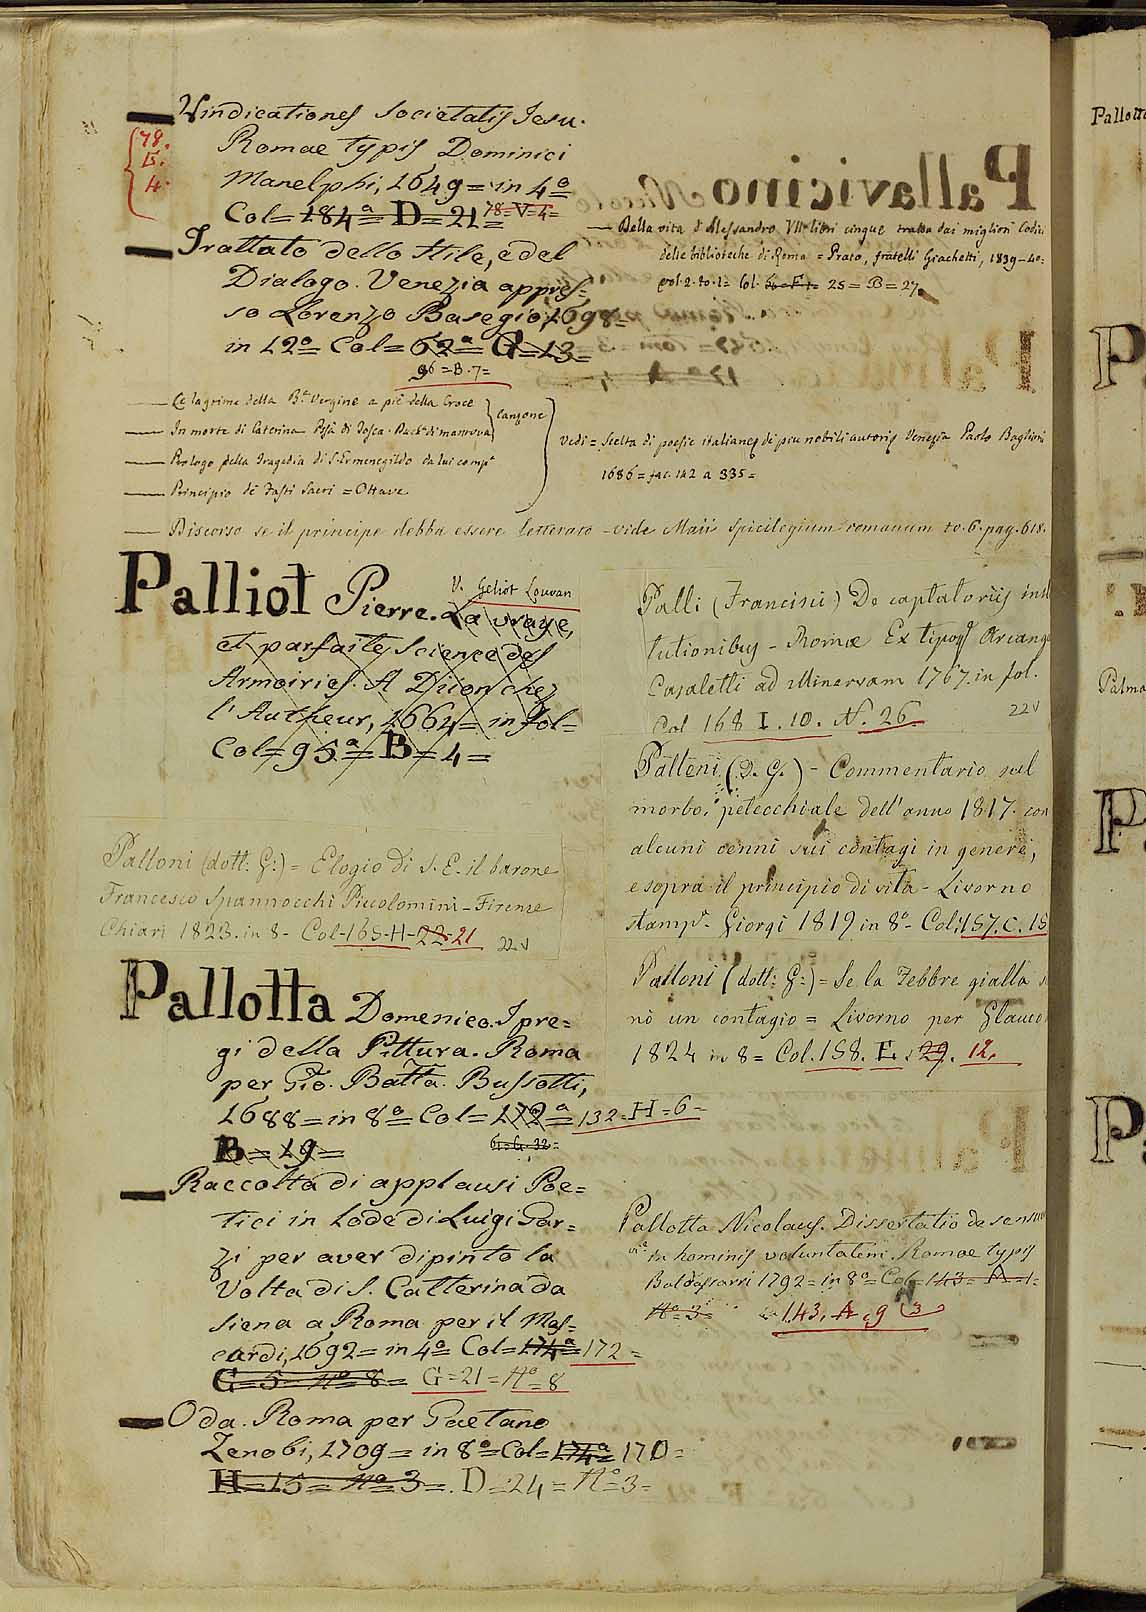 Vindicationes Societatis Jesu.
Romae typis Dominici
Manelphi, 1649 = in 4º
Col = 184ª D = 21 = 78=V=4=
78.
15.
4.
Trattato dello stile, e del
Dialogo. Venezia appres=
so Lorenzo Basegio, 1698=
in 12º Col = 62ª = G = 13 =
96 = B. 7 =
Le lagrime della Bª Vergine a piè della Croce
In morte di Caterina
Canzone
Prologo della Tragedia di S. Ermenegildo da lui compª
Principio di Fasti Sacri = Ottave
Vedi = Scelta di poesie italiane di piu nobili autori, Venezia Paolo Baglioni
1686 = fac. 142 a 335 =
Discorso se il principe debba essere letterato - vide Maii spicilegium romanum to. 6. pag. 618.
Della vita d'Alessandro VIIº libri cinque tratta dai migliori Codici
delle biblioteche di Roma = Prato, fratelli Giachetti, 1839-40=
vol. 2. to. 1= Col. 25 = B = 27.
Palliot Pierre. V. Geliot Louvan
La vraye,
et parfaite Science des
Armoiries. A Dijon chez
l'Autheur, 1664 = in fol =
Col = 95ª = B = 4 =
Palloni (dott: G:) = Elogio di S. E. il barone
Francesco Spannocchi Piccolomini - Firenze
Chiari 1823. in 8 - Col - 165 - H - 22 - 21 22v
Pallotta Domenico. I pre=
gi della Pittura. Roma
per Gio. Batta. Bussotti,
1688 = in 8º Col = 172ª = 132 = H = 6 =
B = 19 =
Raccolta di applausi Poe=
tici in lode di Luigi Gar=
zi per aver dipinto la
Volta di S. Catterina da
Siena a Roma per il Mas=
cardi, 1692 = in 4º Col = 174ª = 172 =
G = 5 = Nº 8 = G = 21 = Nº = 8
Oda. Roma per Gaetano
Zenobi, 1709 = in 8º = Col = 174ª = 170 =
H = 15 = Nº 3 = D = 24 = Nº 3 =
Palli (Francisci) De captatoriis insti
tutionibus - Romæ Ex tipog. Arcange
Casaletti ad Minervam 1767. in fol.
Col 168 I. 10. N. 26. 22v
Palloni (D. G.) - Commentario sul
morbo petecchiale dell'anno 1817. con
alcuni cenni sui contagi in genere,
e sopra il principio di vita - Livorno
stampª Giorgi 1819 in 8º - Col: 157. C. 15
Palloni (dott: G:) = Se la Febbre gialla
nò un contagio = Livorno per Glauco
1824 in 8 = Col. 158. E. 29. 12.
Pallotta Nicolaus. Dissertatio de sensuu
in hominis voluntatem. Romae typis
Baldassarri 1792 = in 8º = Col = 143 = A = 1 =
Nº = 3 = 143. A. 9 (3
Pallotta
Palma